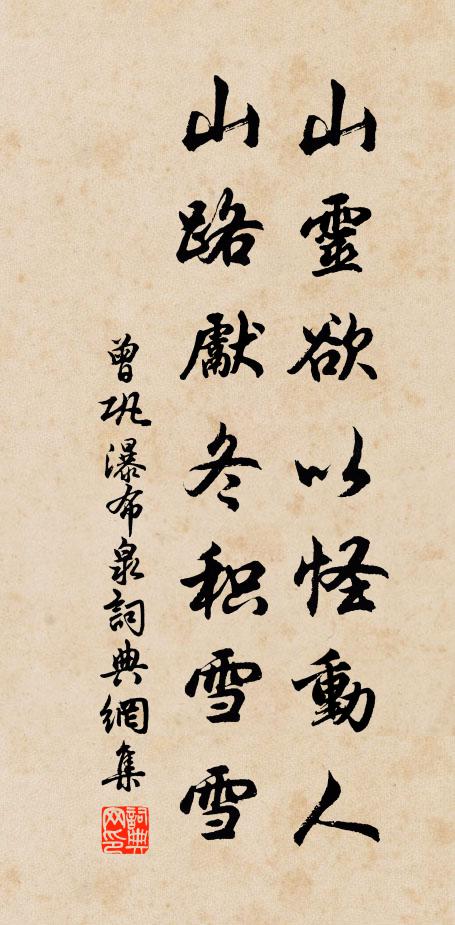 山靈欲以怪動人
山路獻冬积雪雪
曾巩瀑布泉詞典網集
詞典網印